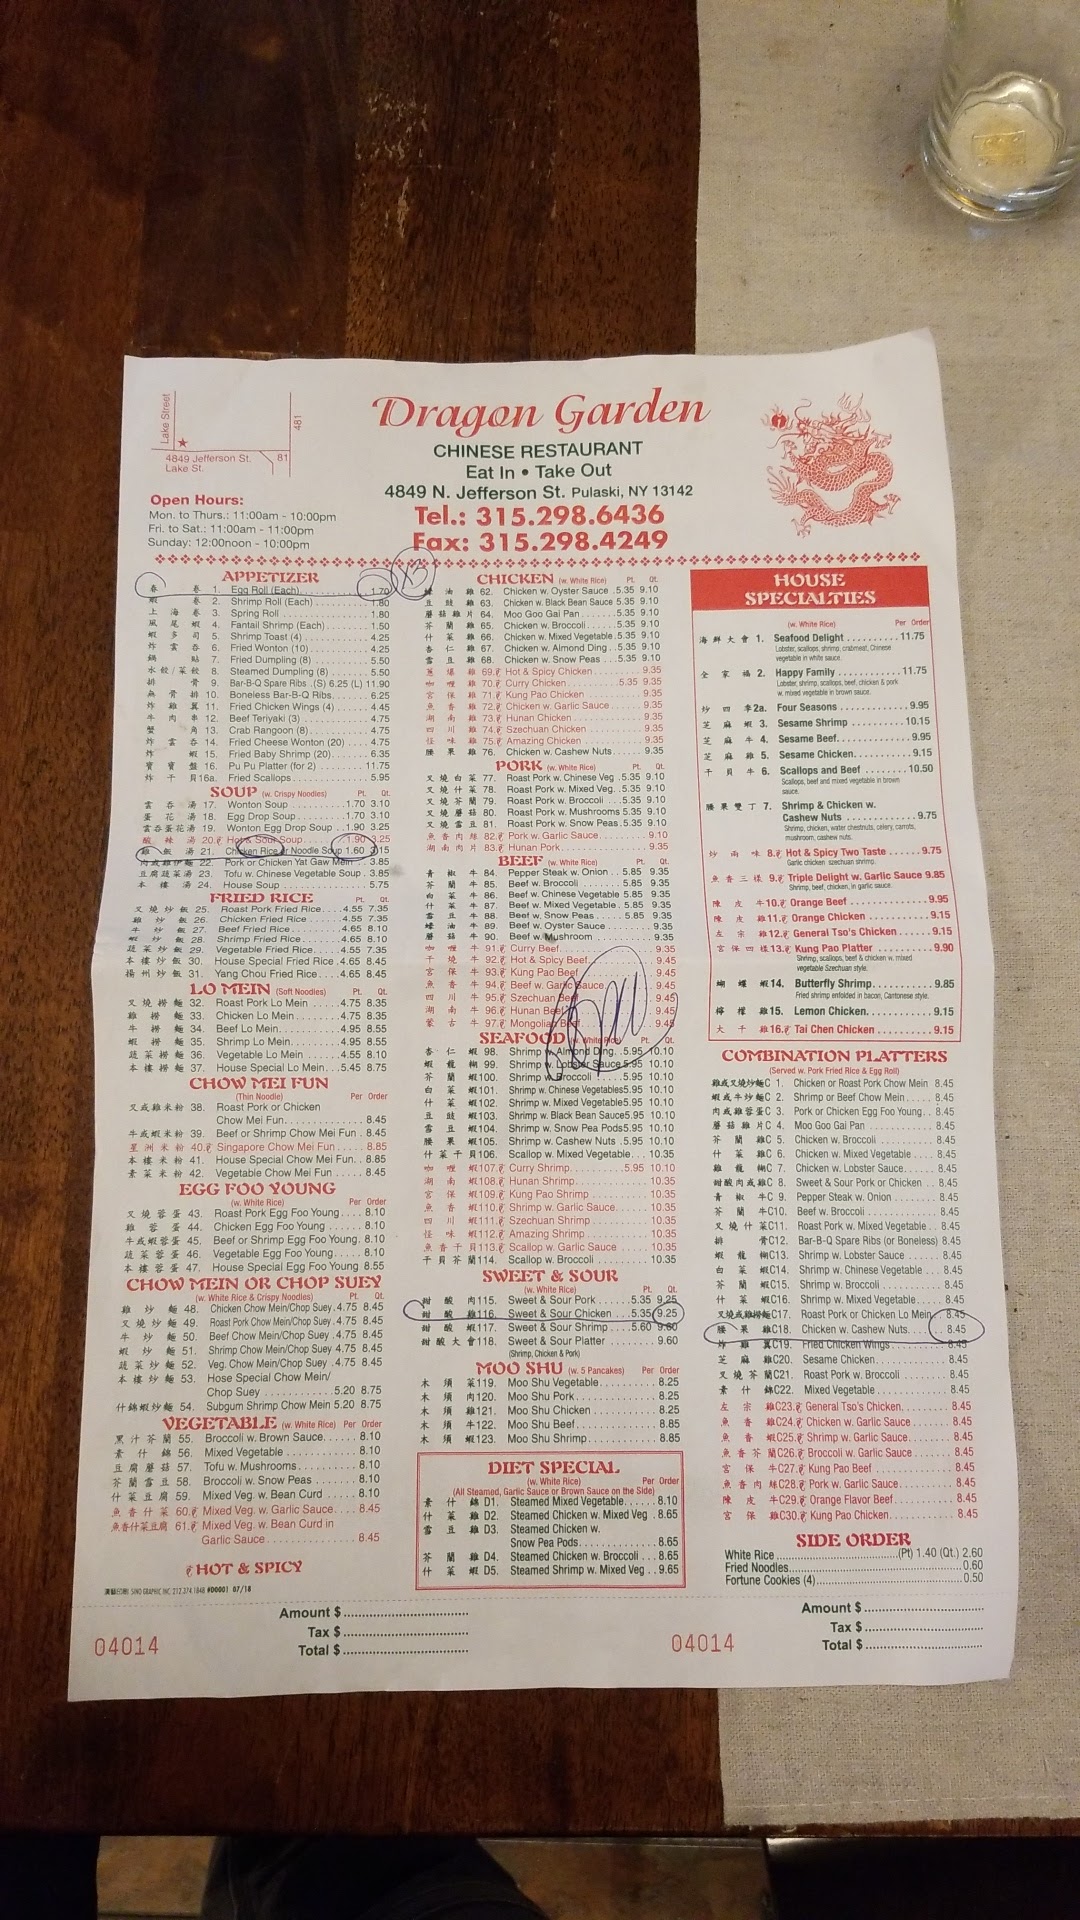 Lake Street
481
4849 Jefferson St.
81
Lake St.
Open Hours:
Mon. to Thurs.: 11:00am - 10:00pm
Fri. to Sat.: 11:00am - 11:00pm
Sunday: 12:00noon - 10:00pm
Dragon Garden
CHINESE RESTAURANT
Eat In • Take Out
4849 N. Jefferson St. Pulaski, NY 13142
Tel.: 315.298.6436
Fax: 315.298.4249
APPETIZER
春卷 1. Egg Roll (Each) 1.70
x3
蝦卷 2. Shrimp Roll (Each) 1.80
上海卷 3. Spring Roll 1.80
鳳尾蝦 4. Fantail Shrimp (Each) 1.50
蝦多司 5. Shrimp Toast (4) 4.25
炸雲吞 6. Fried Wonton (10) 4.25
鍋貼 7. Fried Dumpling (8) 5.50
水餃/菜餃 8. Steamed Dumpling (8) 5.50
排骨 9. Bar-B-Q Spare Ribs (S) 6.25 (L) 11.90
無骨排 10. Boneless Bar-B-Q Ribs 6.25
炸雞翼 11. Fried Chicken Wings (4) 4.45
牛肉串 12. Beef Teriyaki (3) 4.75
蟹角 13. Crab Rangoon (8) 4.75
炸雲吞 14. Fried Cheese Wonton (20) 4.75
炸蝦 15. Fried Baby Shrimp (20) 6.35
寶寶盤 16. Pu Pu Platter (for 2) 11.75
炸干貝 16a. Fried Scallops 5.95
SOUP (w. Crispy Noodles) Pt. Qt.
雲吞湯 17. Wonton Soup 1.70 3.10
蛋花湯 18. Egg Drop Soup 1.70 3.10
雲吞蛋花湯 19. Wonton Egg Drop Soup 1.90 3.25
酸辣湯 20. Hot & Sour Soup 1.90 3.25
雞飯湯 21. Chicken Rice or Noodle Soup 1.60 3.15
肉或雞伊麵 22. Pork or Chicken Yat Gaw Mein 3.85
豆腐蔬菜湯 23. Tofu w. Chinese Vegetable Soup 3.85
本樓湯 24. House Soup 5.75
FRIED RICE Pt. Qt.
叉燒炒飯 25. Roast Pork Fried Rice 4.55 7.35
雞炒飯 26. Chicken Fried Rice 4.55 7.35
牛炒飯 27. Beef Fried Rice 4.65 8.10
蝦炒飯 28. Shrimp Fried Rice 4.65 8.10
蔬菜炒飯 29. Vegetable Fried Rice 4.55 7.35
本樓炒飯 30. House Special Fried Rice 4.65 8.45
揚州炒飯 31. Yang Chou Fried Rice 4.65 8.45
LO MEIN (Soft Noodles) Pt. Qt.
叉燒撈麵 32. Roast Pork Lo Mein 4.75 8.35
雞撈麵 33. Chicken Lo Mein 4.75 8.35
牛撈麵 34. Beef Lo Mein 4.95 8.55
蝦撈麵 35. Shrimp Lo Mein 4.95 8.55
蔬菜撈麵 36. Vegetable Lo Mein 4.55 8.10
本樓撈麵 37. House Special Lo Mein 5.45 8.75
CHOW MEI FUN
(Thin Noodle) Per Order
叉或雞米粉 38. Roast Pork or Chicken
Chow Mei Fun 8.45
牛或蝦米粉 39. Beef or Shrimp Chow Mei Fun 8.45
星洲米粉 40. Singapore Chow Mei Fun 8.85
本樓米粉 41. House Special Chow Mei Fun 8.85
素菜米粉 42. Vegetable Chow Mei Fun 8.45
EGG FOO YOUNG
(w. White Rice) Per Order
叉燒蓉蛋 43. Roast Pork Egg Foo Young 8.10
雞蓉蛋 44. Chicken Egg Foo Young 8.10
牛或蝦蓉蛋 45. Beef or Shrimp Egg Foo Young 8.10
蔬菜蓉蛋 46. Vegetable Egg Foo Young 8.10
本樓蓉蛋 47. House Special Egg Foo Young 8.55
CHOW MEIN OR CHOP SUEY
(w. White Rice & Crispy Noodles) Pt. Qt.
雞炒麵 48. Chicken Chow Mein/Chop Suey 4.75 8.45
叉燒炒麵 49. Roast Pork Chow Mein/Chop Suey 4.75 8.45
牛炒麵 50. Beef Chow Mein/Chop Suey 4.75 8.45
蝦炒麵 51. Shrimp Chow Mein/Chop Suey 4.75 8.45
蔬菜炒麵 52. Veg. Chow Mein/Chop Suey 4.75 8.45
本樓炒麵 53. Hose Special Chow Mein/
Chop Suey 5.20 8.75
什錦蝦炒麵 54. Subgum Shrimp Chow Mein 5.20 8.75
VEGETABLE (w. White Rice) Per Order
黑汁芥蘭 55. Broccoli w. Brown Sauce 8.10
素什錦 56. Mixed Vegetable 8.10
豆腐蘑菇 57. Tofu w. Mushrooms 8.10
芥蘭雪豆 58. Broccoli w. Snow Peas 8.10
什菜豆腐 59. Mixed Veg. w. Bean Curd 8.10
魚香什菜 60. Mixed Veg. w. Garlic Sauce 8.45
魚香什菜豆腐 61. Mixed Veg. w. Bean Curd in
Garlic Sauce 8.45
HOT & SPICY
SINO GRAPHIC INC 212.374.1848 #D0001 07/18
CHICKEN (w. White Rice) Pt. Qt.
蠔油雞 62. Chicken w. Oyster Sauce 5.35 9.10
豆豉雞 63. Chicken w. Black Bean Sauce 5.35 9.10
蘑菇雞片 64. Moo Goo Gai Pan 5.35 9.10
芥蘭雞 65. Chicken w. Broccoli 5.35 9.10
什菜雞 66. Chicken w. Mixed Vegetable 5.35 9.10
杏仁雞 67. Chicken w. Almond Ding 5.35 9.10
雪豆雞 68. Chicken w. Snow Peas 5.35 9.10
蔥爆雞 69. Hot & Spicy Chicken 9.35
咖喱雞 70. Curry Chicken 5.35 9.35
宮保雞 71. Kung Pao Chicken 9.35
魚香雞 72. Chicken w. Garlic Sauce 9.35
湖南雞 73. Hunan Chicken 9.35
四川雞 74. Szechuan Chicken 9.35
怪味雞 75. Amazing Chicken 9.35
腰果雞 76. Chicken w. Cashew Nuts 9.35
PORK (w. White Rice) Pt. Qt.
叉燒白菜 77. Roast Pork w. Chinese Veg 5.35 9.10
叉燒什菜 78. Roast Pork w. Mixed Veg. 5.35 9.10
叉燒芥蘭 79. Roast Pork w. Broccoli 5.35 9.10
叉燒蘑菇 80. Roast Pork w. Mushrooms 5.35 9.10
叉燒雪豆 81. Roast Pork w. Snow Peas 5.35 9.10
魚香肉絲 82. Pork w. Garlic Sauce 9.10
湖南肉片 83. Hunan Pork 9.35
BEEF (w. White Rice) Pt. Qt.
青椒牛 84. Pepper Steak w. Onion 5.85 9.35
芥蘭牛 85. Beef w. Broccoli 5.85 9.35
白菜牛 86. Beef w. Chinese Vegetable 5.85 9.35
什菜牛 87. Beef w. Mixed Vegetable 5.85 9.35
雪豆牛 88. Beef w. Snow Peas 5.85 9.35
蠔油牛 89. Beef w. Oyster Sauce 9.35
蘑菇牛 90. Beef w. Mushroom 9.35
咖喱牛 91. Curry Beef 9.35
干燒牛 92. Hot & Spicy Beef 9.45
宮保牛 93. Kung Pao Beef 9.45
魚香牛 94. Beef w. Garlic Sauce 9.45
四川牛 95. Szechuan Beef 9.45
湖南牛 96. Hunan Beef 9.45
蒙古牛 97. Mongolian Beef 9.45
SEAFOOD (w. White Rice) Pt. Qt.
杏仁蝦 98. Shrimp w. Almond Ding 5.95 10.10
蝦龍糊 99. Shrimp w. Lobster Sauce 5.95 10.10
芥蘭蝦 100. Shrimp w. Broccoli 5.95 10.10
白菜蝦 101. Shrimp w. Chinese Vegetables 5.95 10.10
什菜蝦 102. Shrimp w. Mixed Vegetables 5.95 10.10
豆豉蝦 103. Shrimp w. Black Bean Sauce 5.95 10.10
雪豆蝦 104. Shrimp w. Snow Pea Pods 5.95 10.10
腰果蝦 105. Shrimp w. Cashew Nuts 5.95 10.10
什菜干貝 106. Scallop w. Mixed Vegetable 10.35
咖喱蝦 107. Curry Shrimp 5.95 10.10
湖南蝦 108. Hunan Shrimp 10.35
宮保蝦 109. Kung Pao Shrimp 10.35
魚香蝦 110. Shrimp w. Garlic Sauce 10.35
四川蝦 111. Szechuan Shrimp 10.35
怪味蝦 112. Amazing Shrimp 10.35
魚香干貝 113. Scallop w. Garlic Sauce 10.35
干貝芥蘭 114. Scallop w. Broccoli 10.35
SWEET & SOUR
(w. White Rice) Pt. Qt.
甜酸肉 115. Sweet & Sour Pork 5.35 9.25
甜酸雞 116. Sweet & Sour Chicken 5.35 9.25
甜酸蝦 117. Sweet & Sour Shrimp 5.60 9.60
甜酸大會 118. Sweet & Sour Platter 9.60
(Shrimp, Chicken & Pork)
MOO SHU (w. 5 Pancakes) Per Order
木須菜 119. Moo Shu Vegetable 8.25
木須肉 120. Moo Shu Pork 8.25
木須雞 121. Moo Shu Chicken 8.25
木須牛 122. Moo Shu Beef 8.85
木須蝦 123. Moo Shu Shrimp 8.85
DIET SPECIAL
(w. White Rice) Per Order
(All Steamed, Garlic Sauce or Brown Sauce on the Side)
素什錦 D1. Steamed Mixed Vegetable 8.10
什菜雞 D2. Steamed Chicken w. Mixed Veg 8.65
雪豆雞 D3. Steamed Chicken w.
Snow Pea Pods 8.65
芥蘭雞 D4. Steamed Chicken w. Broccoli 8.65
什菜蝦 D5. Steamed Shrimp w. Mixed Veg 9.65
HOUSE
SPECIALTIES
(w. White Rice) Per Order
海鮮大會 1. Seafood Delight 11.75
Lobster, scallops, shrimp, crabmeat, Chinese
vegetable in white sauce.
全家福 2. Happy Family 11.75
Lobster, shrimp, scallops, beef, chicken & pork
w. mixed vegetable in brown sauce.
炒四季 2a. Four Seasons 9.95
芝麻蝦 3. Sesame Shrimp 10.15
芝麻牛 4. Sesame Beef 9.95
芝麻雞 5. Sesame Chicken 9.15
干貝牛 6. Scallops and Beef 10.50
Scallops, beef and mixed vegetable in brown
sauce.
腰果雙丁 7. Shrimp & Chicken w.
Cashew Nuts 9.75
Shrimp, chicken, water chestnuts, celery, carrots,
mushroom, cashew nuts in brown sauce.
炒兩味 8. Hot & Spicy Two Taste 9.75
Garlic chicken szechuan shrimp.
魚香三樣 9. Triple Delight w. Garlic Sauce 9.85
Shrimp, beef, chicken, in garlic sauce.
陳皮牛 10. Orange Beef 9.95
陳皮雞 11. Orange Chicken 9.15
左宗雞 12. General Tso's Chicken 9.15
宮保四樣 13. Kung Pao Platter 9.90
Shrimp, scallops, beef & chicken w. mixed
vegetable Szechuan style.
蝴蝶蝦 14. Butterfly Shrimp 9.85
Fried shrimp enfolded in bacon, Cantonese style.
檸檬雞 15. Lemon Chicken 9.15
大千雞 16. Tai Chen Chicken 9.15
COMBINATION PLATTERS
(Served w. Pork Fried Rice & Egg Roll)
雞或叉燒炒麵 C 1. Chicken or Roast Pork Chow Mein 8.45
蝦或牛炒麵 C 2. Shrimp or Beef Chow Mein 8.45
肉或雞蓉蛋 C 3. Pork or Chicken Egg Foo Young 8.45
蘑菇雞片 C 4. Moo Goo Gai Pan 8.45
芥蘭雞 C 5. Chicken w. Broccoli 8.45
什菜雞 C 6. Chicken w. Mixed Vegetable 8.45
雞龍糊 C 7. Chicken w. Lobster Sauce 8.45
甜酸肉或雞 C 8. Sweet & Sour Pork or Chicken 8.45
青椒牛 C 9. Pepper Steak w. Onion 8.45
芥蘭牛 C10. Beef w. Broccoli 8.45
叉燒什菜 C11. Roast Pork w. Mixed Vegetable 8.45
排骨 C12. Bar-B-Q Spare Ribs (or Boneless) 8.45
蝦龍糊 C13. Shrimp w. Lobster Sauce 8.45
白菜蝦 C14. Shrimp w. Chinese Vegetable 8.45
芥蘭蝦 C15. Shrimp w. Broccoli 8.45
什菜蝦 C16. Shrimp w. Mixed Vegetable 8.45
叉燒或雞撈麵 C17. Roast Pork or Chicken Lo Mein 8.45
腰果雞 C18. Chicken w. Cashew Nuts 8.45
炸雞翼 C19. Fried Chicken Wings 8.45
芝麻雞 C20. Sesame Chicken 8.45
叉燒芥蘭 C21. Roast Pork w. Broccoli 8.45
素什錦 C22. Mixed Vegetable 8.45
左宗雞 C23. General Tso's Chicken 8.45
魚香雞 C24. Chicken w. Garlic Sauce 8.45
魚香蝦 C25. Shrimp w. Garlic Sauce 8.45
魚香芥蘭 C26. Broccoli w. Garlic Sauce 8.45
宮保牛 C27. Kung Pao Beef 8.45
魚香肉絲 C28. Pork w. Garlic Sauce 8.45
陳皮牛 C29. Orange Flavor Beef 8.45
宮保雞 C30. Kung Pao Chicken 8.45
SIDE ORDER
White Rice (Pt) 1.40 (Qt.) 2.60
Fried Noodles 0.60
Fortune Cookies (4) 0.50
Amount $
Tax $
Total $
04014
Amount $
Tax $
Total $
04014